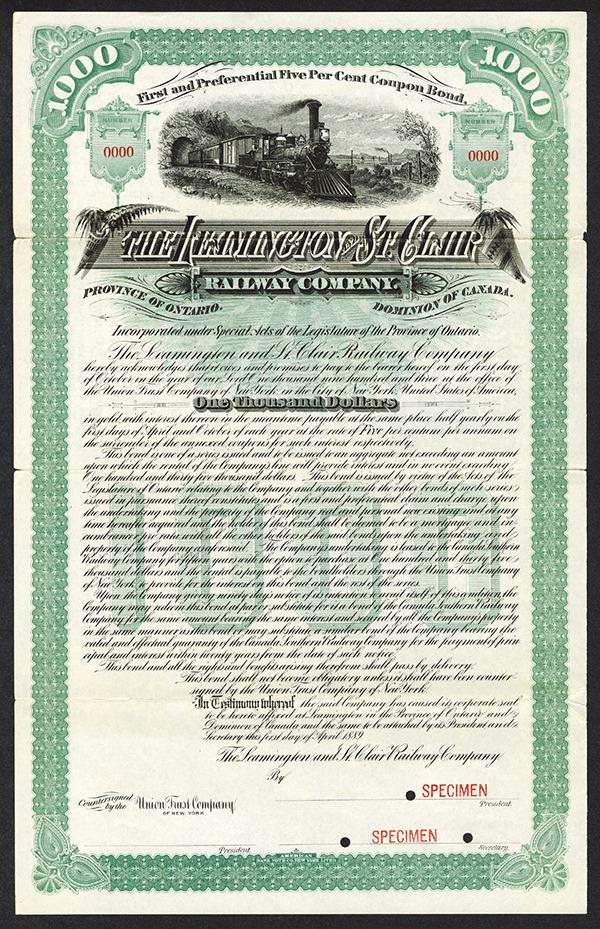 1000
1000
First and Preferential Five Per Cent Coupon Bond.
NUMBER
NUMBER
0000
0000
THE LEAMINGTON AND ST. CLAIR
RAILWAY COMPANY.
PROVINCE OF ONTARIO.
DOMINION OF CANADA.
Incorporated under Special Acts of the Legislature of the Province of Ontario.
The Leamington and St. Clair Railway Company
hereby acknowledges that it owes and promises to pay to the bearer hereof on the first day
of October in the year of our Lord One thousand nine hundred and three at the office of
the Union Trust Company of New York, in the City of New York, United States of America,
One Thousand Dollars
in gold, with interest thereon in the meantime payable at the same place half yearly on the
first days of April and October of each year at the rate of Five per centum per annum on
the surrender of the annexed coupons for such interest respectively.
This bond is one of a series issued and to be issued to an aggregate not exceeding an amount
upon which the rental of the Company's line will provide interest and in no event exceeding
One hundred and thirty five thousand dollars. This bond is issued by virtue of the Acts of the
Legislature of Ontario relating to the Company and together with the other bonds of such series
issued in pursuance thereof constitutes and is a first and preferential claim and charge upon
the undertaking and the property of the Company real and personal now existing and at any
time hereafter acquired and the holder of this bond shall be deemed to be a mortgagee and in-
cumbrancer pro rata with the other holders of the said bonds upon the undertaking and
property of the Company as aforesaid. The Company's undertaking is leased to the Canada Southern
Railway Company for fifteen years with the option to purchase at One hundred and thirty five
thousand dollars and the rental is payable to the bondholders through the Union Trust Company
of New York to provide for the interest on this bond and the rest of the series.
Upon the Company giving ninety day's notice of its intention to avail itself of this condition, the
Company may redeem this bond at par or substitute for it a bond of the Canada Southern Railway
Company for the same amount bearing the same interest and secured by all the Company's property
in the same manner as this bond or may substitute a similar bond of the Company bearing the
valid and effectual guaranty of the Canada Southern Railway Company for the payment of prin-
cipal and interest within twenty years from the date of such notice.
This bond and all the rights and benefits arising therefrom shall pass by delivery.
This bond shall not become obligatory unless it shall have been counter-
signed by the Union Trust Company of New York.
In Testimony whereof, the said Company has caused its corporate seal
to be hereto affixed at Leamington in the Province of Ontario and
Dominion of Canada and the same to be attached by its President and
Secretary this first day of April 1889.
The Leamington and St. Clair Railway Company
By
SPECIMEN
President.
Countersigned by the Union Trust Company
OF NEW YORK.
SPECIMEN
President.
Secretary.
AMERICAN
BANK NOTE CO NEW YORK